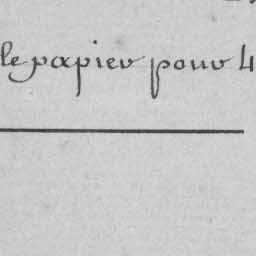 le papier pour 4